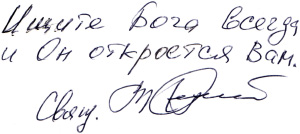 Ищите Бога всегда
и Он откроется Вам.
Свящ.